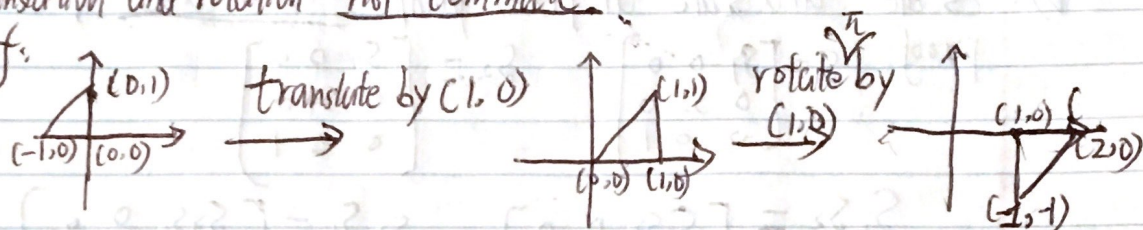 and rotation not commute.
f:
(0,1)
(-1,0) (0,0)
translate by (1,0)
(1,1)
(0,0) (1,0)
π
rotate by
(1,0)
(1,0)
(2,0)
(-1,-1)